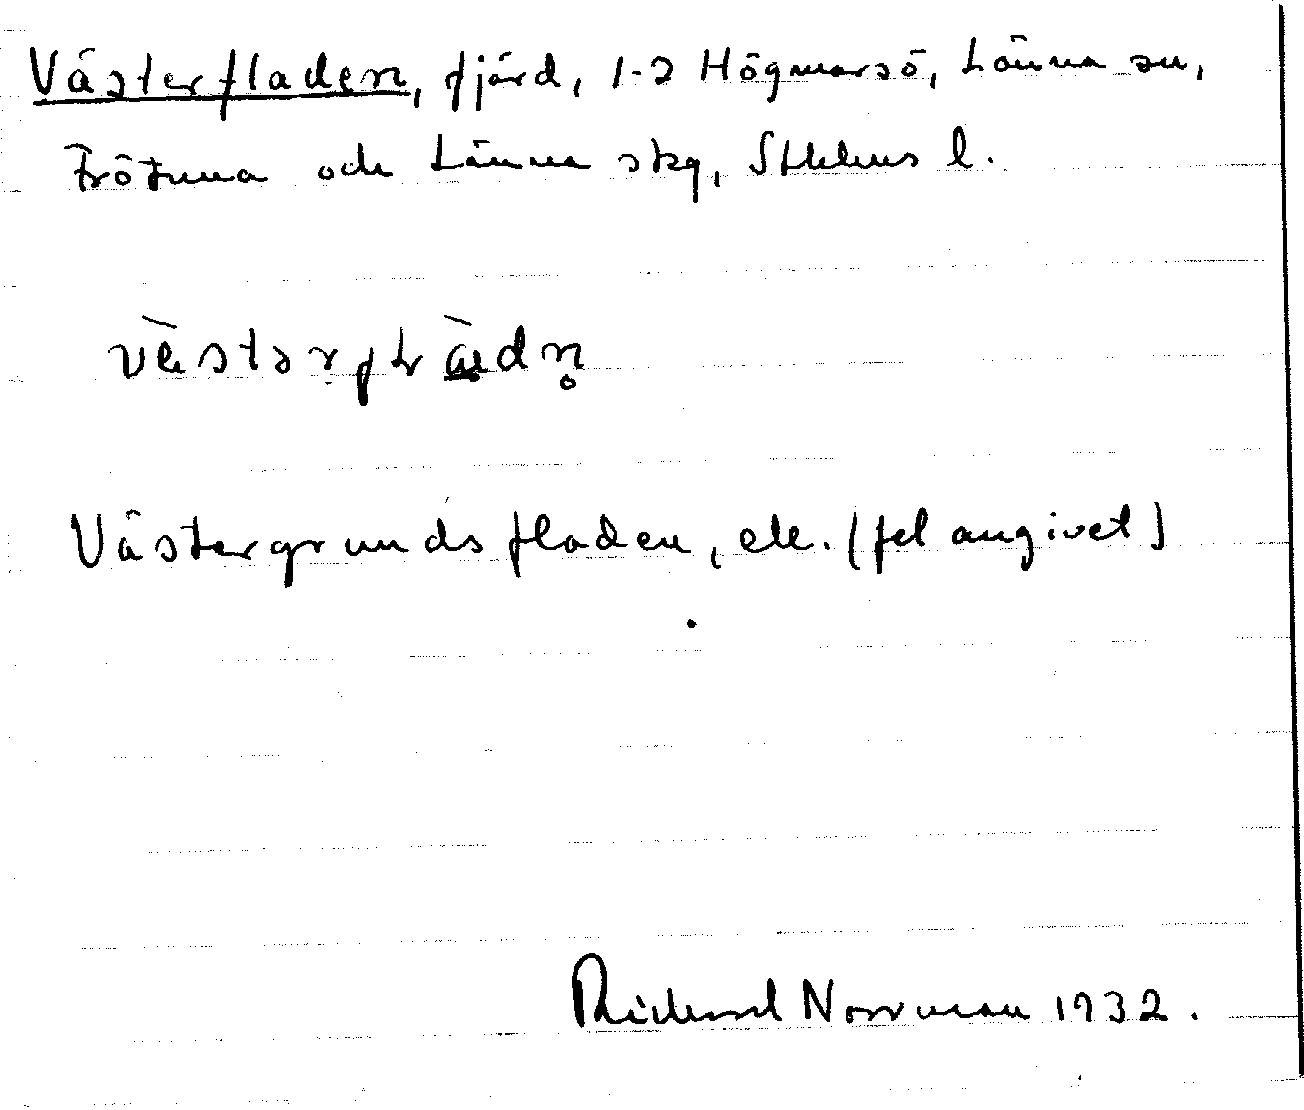 Västerfladen, fjärd, 1-2 Högmarsö, Länna sn,
Frötuna och Länna skg, Sthlms l.
Västergrundsfladen, ek. (fel angivet)
Rickard Norrman 1932.